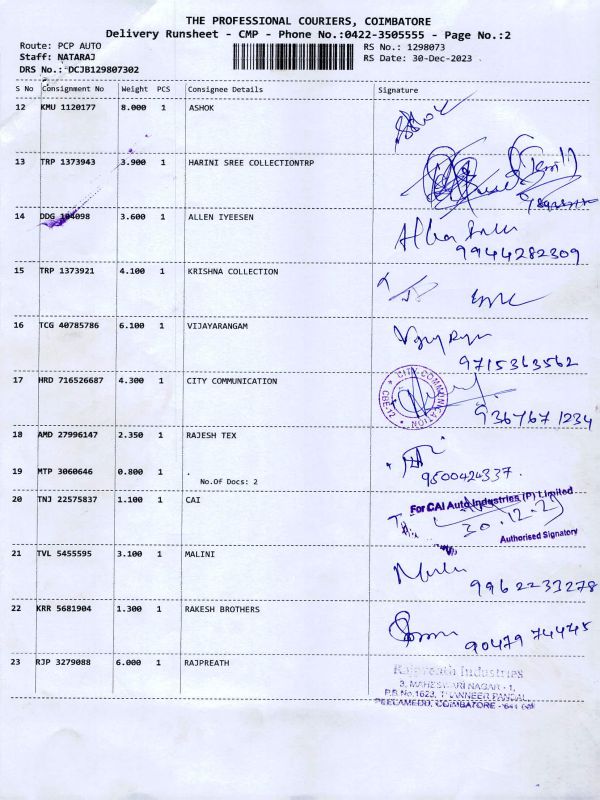 THE PROFESSIONAL COURIERS, COIMBATORE
Delivery Runsheet - CMP - Phone No.:0422-3505555 - Page No.:2
Route: PCP AUTO RS No.: 1298073
Staff: NATARAJ RS Date: 30-Dec-2023
DRS No.: DCJB129807302
S No Consignment No Weight PCS Consignee Details Signature
12 KMU 1120177 8.000 1 ASHOK
13 TRP 1373943 3.900 1 HARINI SREE COLLECTIONTRP
14 DDG 104098 3.600 1 ALLEN IYEESEN
9944282309
15 TRP 1373921 4.100 1 KRISHNA COLLECTION
16 TCG 40785786 6.100 1 VIJAYARANGAM
9715363562
17 HRD 716526687 4.300 1 CITY COMMUNICATION
CITY COMMUNICATION
CBE-12
9367671234
18 AMD 27996147 2.350 1 RAJESH TEX
9500424337
19 MTP 3060646 0.800 1 .
No.Of Docs: 2
20 TNJ 22575837 1.100 1 CAI
For CAI Auto Industries (P) Limited
30.12.23
Authorised Signatory
21 TVL 5455595 3.100 1 MALINI
9962233278
22 KRR 5681904 1.300 1 RAKESH BROTHERS
9047974445
23 RJP 3279088 6.000 1 RAJPREATH
Rajpreath Industries
3, MAHESWARI NAGAR - 1,
P.B.No.1623, THANNEER PANDAL,
PEELAMEDU, COIMBATORE - 641 004